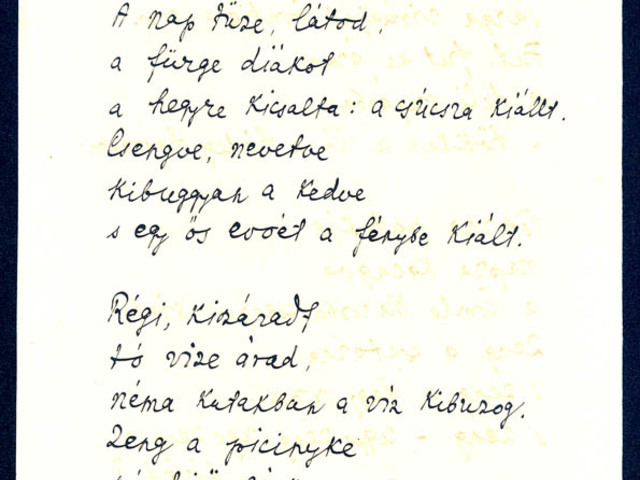 A nap tüze, látod,
a fürge diákot
a hegyre kicsalta: a csúcsra kiállt.
Csengve, nevetve
kibuggyan a kedve
s egy ős evoét a fénybe kiált.
Régi, kiszáradt
tó vize árad,
néma kutakban a víz kibuzog.
Zeng a picinyke